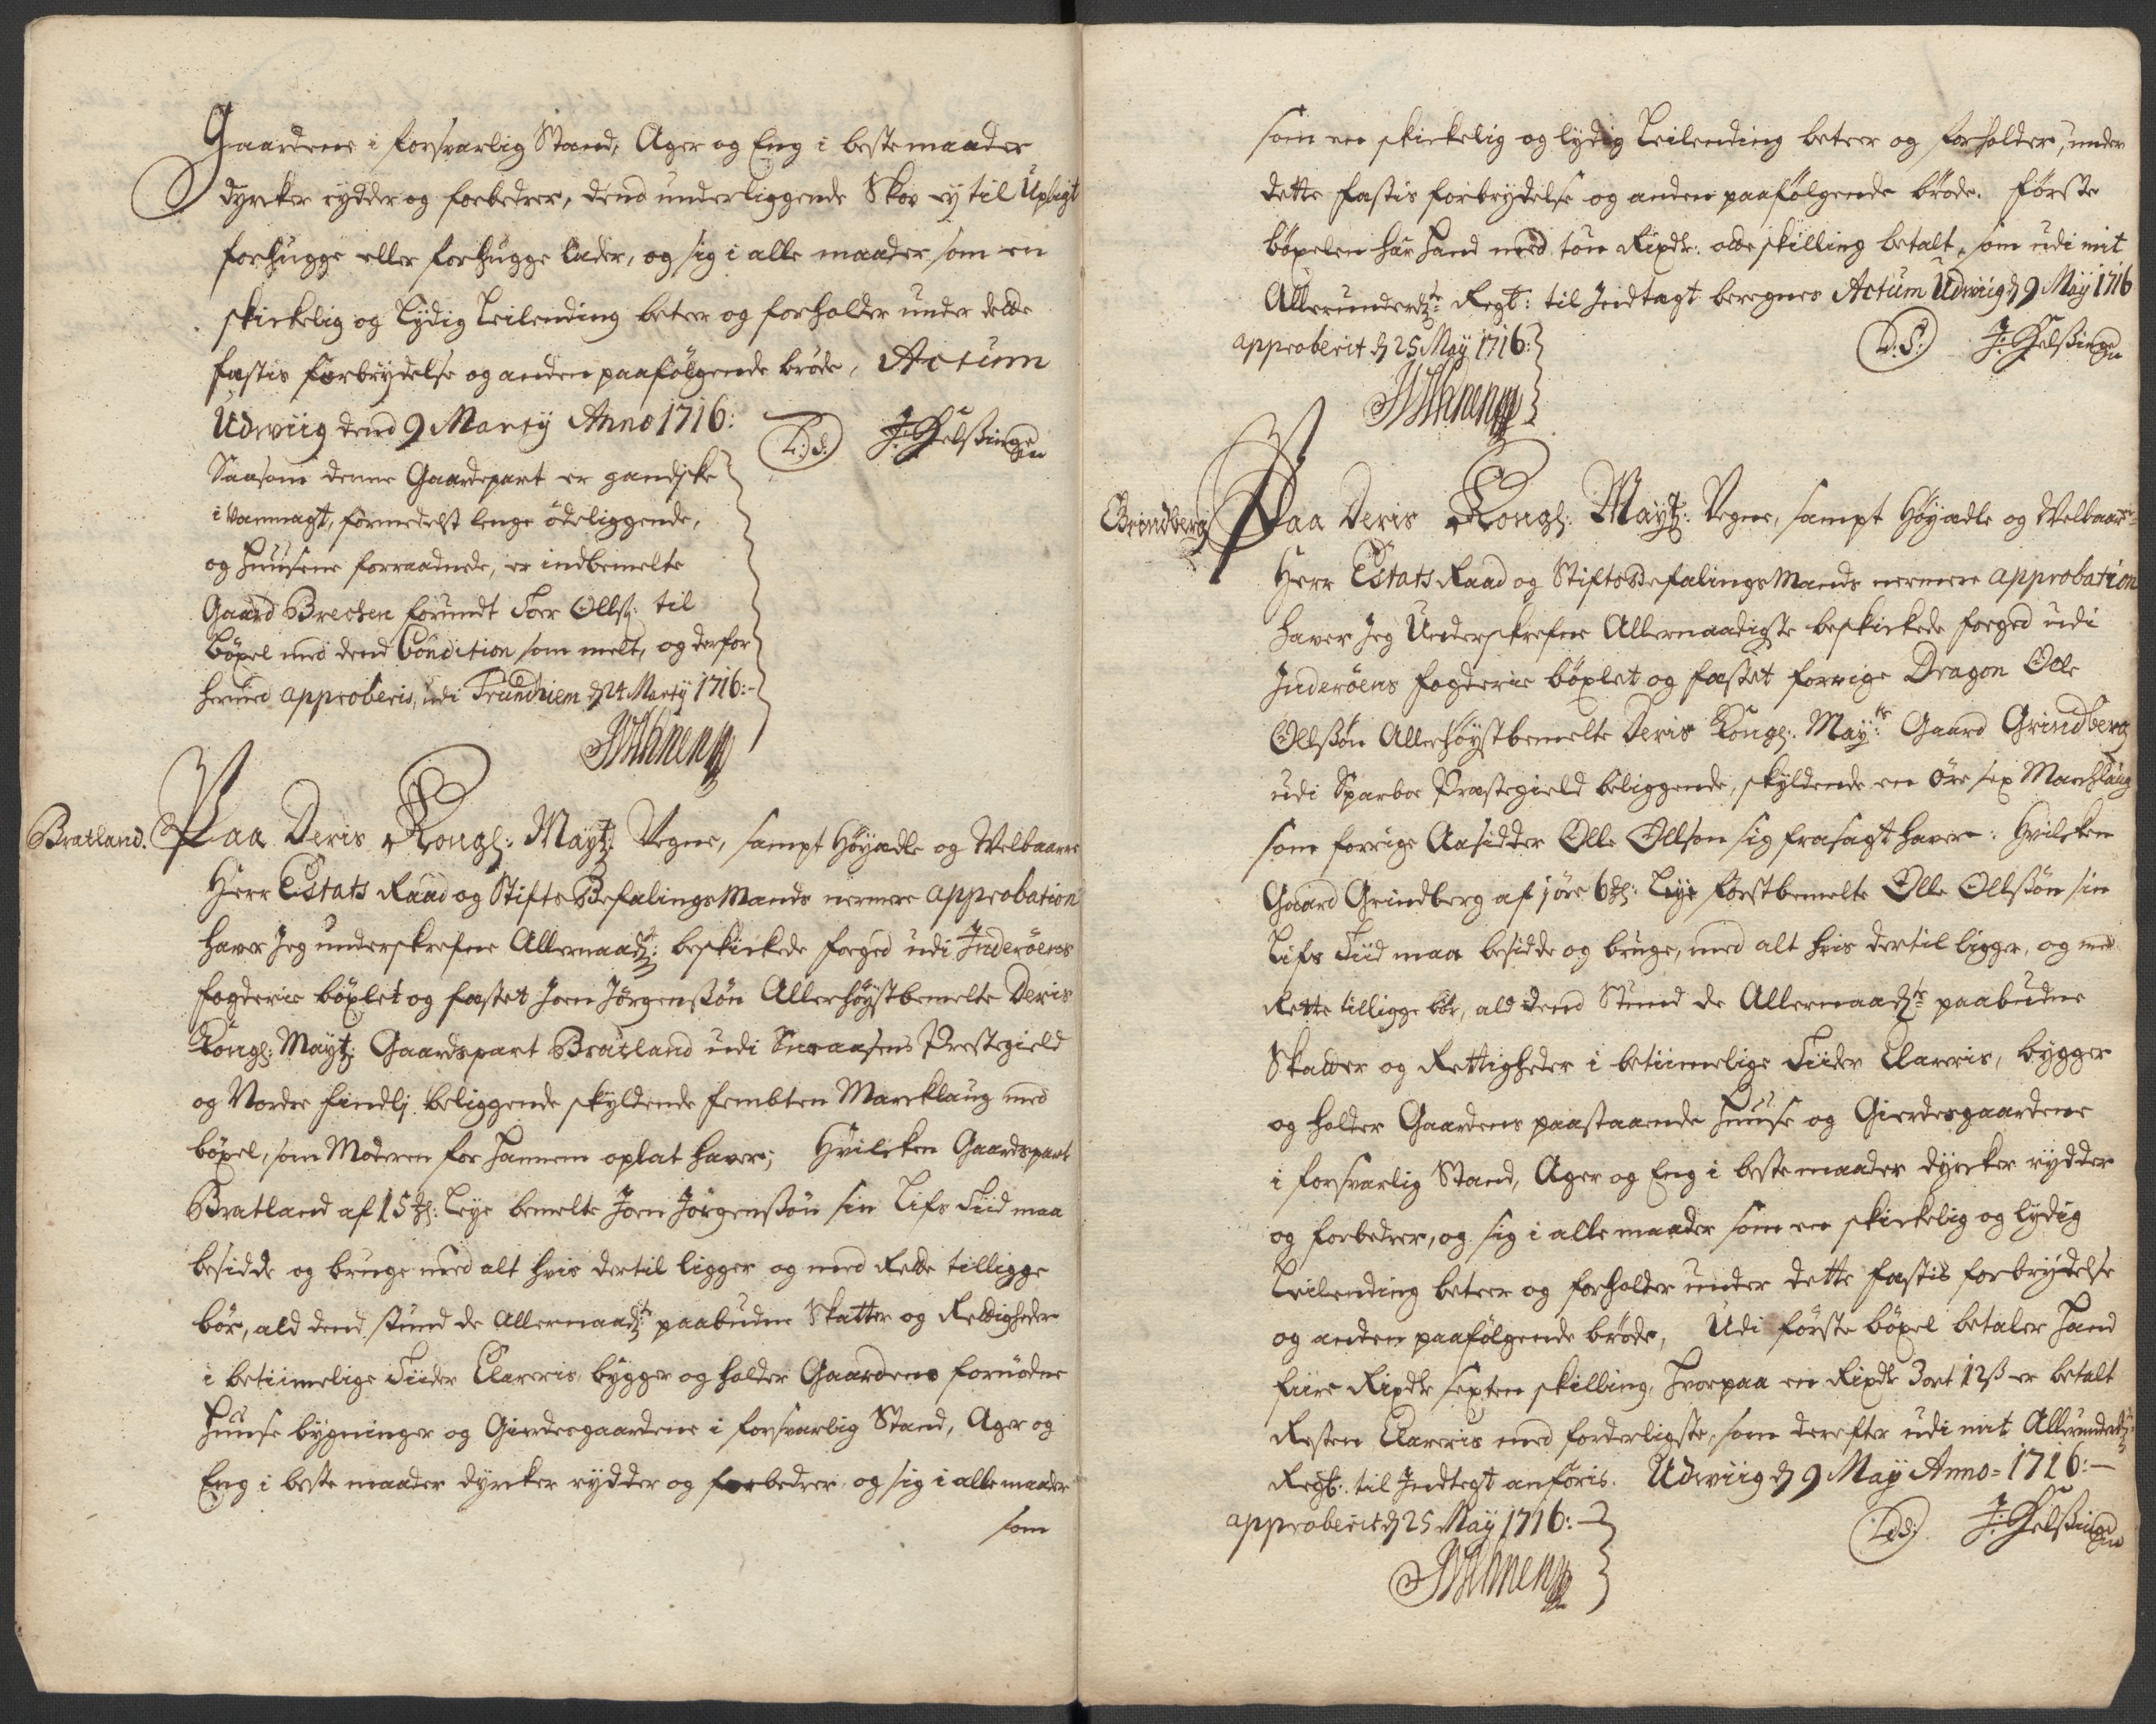 Gaardene i forsvarlig Stand, Ager og Eng i beste maader
dyrcker rydder og forbedrer, dend underliggende Skov ey til Upligt
forhugge eller forhugge lader, og sig i alle maader som en
skickelig og Lydig Leilending beteer og forholder under dette
fæstis forbrydelse og anden paafølgende brøde, Actum
Udwiig dend 9 Marty Anno 1716:
L: S: J: Helssingen
Saasom denne Gaardepart er gandske
i vanmagt, formedelst lenge ödeliggende,
og Huusene forraadnede, er indbemelte
Gaard Brechen forundt Toer Ollss: til
Böxel med dend Condition som melt, og derfor
hermed approberis, udi Trundhiem d 24 Marty 1716:-
Bratland. Paa Deris Kongl: Mayt: Vegne, sampt Høyædle og Welbaarne
Herr Estats Raad og StiftsBefalingsMands nermere approbation
haver Jeg underskrefne Allernaadst: beskickede foeged udi Inderöens
fogderie böxlet og fæstet Joen Jörgenssön Allerhöystbemelte Deris
Kongl: Mayt: Gaardspart Bratland udi Snaasens Prestegield
og Nordre Findlj beliggende skyldende fembten Marcklaug med
böxel, som Moderen for hannem oplat haver; Hvilcken Gaardspart
Bratland af 15 ml: Leye bemelte Joen Jörgenssön sin Lifs Tiid maa
besidde og bruge med alt hvis dertil ligger og med Rette tilligge
bör, ald dend stund de Allernaadst: paabudne Skatter og Rettigheder
i betiimelige Tiider Clareris, bygger og holder Gaardens fornødne
Huuse bygninger og Gierdesgaardene i forsvarlig Stand, Ager og
Eng i beste maader dyrcker rydder og forbedrer og sig i alle maader
som
som en skickelig og lydig Leilending beteer og forholder, under
dette fæstis forbrydelse og anden paafølgende brøde. Første
böxelen har hand med tou Rixdr: otte skilling betalt, som udi mit
Allerunderdste Regt: til Indtægt beregnes Actum Udwiig d 9 May 1716
approberit d 25 May 1716:
L: S: J: Helssingen
Grindberg Paa Deris Kongl: Mayt: Vegne, sampt Høyædle og Welbaarne
Herr Estats Raad og StiftsBefalingsMands nermere approbation
haver Jeg Underskrefne Allernaadigste beskickede foeged udi
Inderöens fogderie böxlet og fæstet forrige Dragon Olle
Ollssön Allerhöystbemelte Deris Kongl: Mayts: Gaard Grindberg
udi Sparboe Præstegield beliggende, skyldende en öre sex Marchlaug
som forrige Aasidder Olle Ollson sig frasagt haver: Hvilcken
Gaard Grindberg af 1 öre 6 ml: Leye förstbemelte Olle Ollssön sin
Lifs Tiid maa besidde og bruge, med alt hvis dertil ligger, og med
Rette tilligge bör, ald dend Stund de Allernaadste paabudne
Skatter og Rettigheder i betiimelige Tiider Clareris, bygger
og holder Gaardens paastaaende Huuse og Gierdesgaardene
i forsvarlig Stand, Ager og Eng i beste maader dyrcker rydder
og forbedrer, og sig i alle maader som en skickelig og lydig
Leilending beteer og forholder under dette fæstis forbrydelse
og anden paafølgende brøde, Udi förste böxel betaler hand
fiire Rixdr sexten skilling, hvorpaa en Rixdr 3 ort 12 ß er betalt
Resten Clareris med forderligste, som derefter udi mit Allerunderdste
Regt: til Indtegt anföris. Udwiig d 9 May Anno 1716:-
approberit d 25 May 1716:-
L: S: J: Helssingen